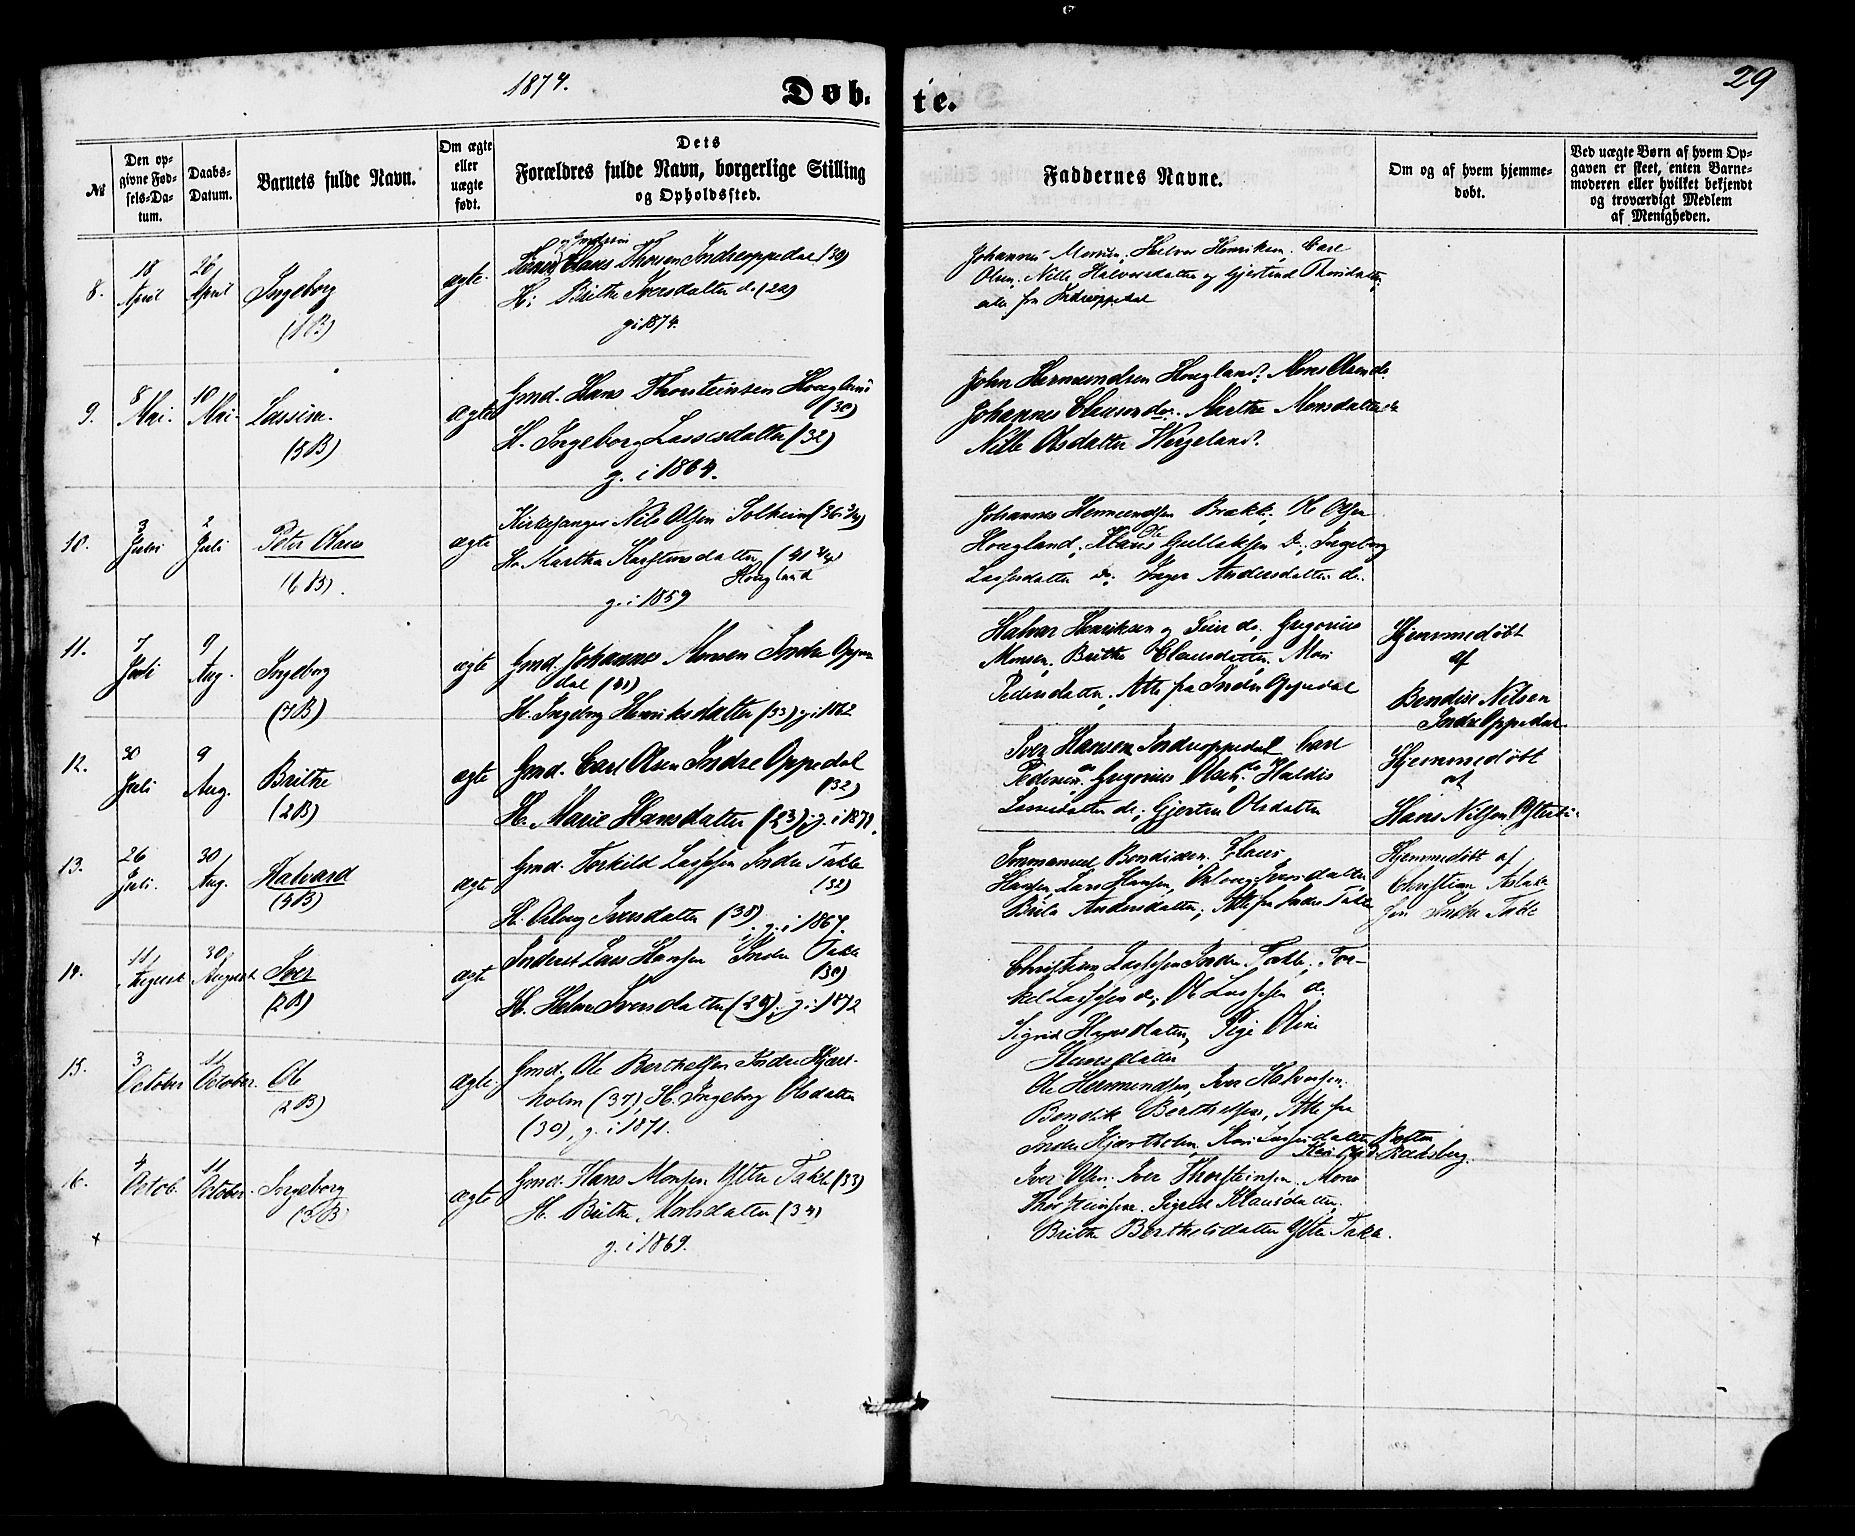 1874.
Døb.
te.
29
№
Den op-
givne Fød-
sels-Da-
tum.
Daabs-
Datum.
Barnets fulde Navn.
Om ægte
eller
uægte
født.
Dets
Forældres fulde Navn, borgerlige Stilling
og Opholdssted.
Faddernes Navne.
Om og af hvem hjemme-
døbt.
Ved uægte Børn af hvem Op-
gaven er skeet, enten Barne-
moderen eller hvilket bekjendt
og troværdigt Medlem
af Menigheden.
8.
18
April
26
April
Ingeborg
(1B)
ægte
Claus Thorsen Indreoppedal (30)
H: Brithe Iversdatter do (20)
g i 1874.
Johannes Monsen, Halvor Henriksen, Carl
Olsen, Nille Halvorsdatter og Gjertrud
alle fra Indreoppedal
9.
8
Mai.
10
Mai.
Lassine.
(5B)
ægte
Gmd. Hans Thorsteinsen Hougland
(30)
H. Ingeborg Lassesdatter (32)
g. i 1864.
John Hermundsen Hougland, Mons Olsen do
Johannes Clausen do. Marthe Monsdatter do
Nille Olsdatter Wergeland.
10.
3
Juni
2
Juli
Peter Olaus
(6B).
ægte
Kirkesanger Nils Olsen Solheim (36 3/4)
H. Martha Karstensdatter (41 3/4)
Hougland
g. i 1859
Johannes Hermundsen Brekke, Ole Olsen
Hougland, Gullaksen D., Ingeborg
Lassesdatter do, Inger Andersdatter do.
11.
7
Juli
9
Aug.
Ingeborg
(7B)
ægte
Gmd. Johannes Monsen Indre Oppe-
dal (41)
H. Ingeborg Henriksdatter (33) g i 1862
Halvor Henriksen og Siri do, Gregorius
Monsen, Brithe Clausdatter, Mari
Pedersdatter. Alle fra Indre Oppedal
Hjemmedøbt
af
Bendix Nilsen
Indre Oppedal
12.
30
Juli
9
Aug.
Brithe
(2B)
ægte
Gmd. Carl Olsen Indre Oppedal
(32)
H. Marie Hansdatter (23) g. i 1871.
Iver Hansen Indreoppedal Carl
Pedersen do Gregorius Olsen do, Haldis
do; Gjertru Olsdatter
Hjemmedøbt
af
Hans Nilsen
13.
26
Juli.
30
Aug.
Halvard
(5B)
ægte
Gmd. Torkild Lassesen Indre Takle
(32)
H. Iversdatter (38) g. i 1867.
Immanuel Bendixsen, Klaus
Hansen, Lars Hansen, Iversdatter
Andersdatter; Alle fra Indre Takle
Hjemmedøbt af
Christian Aslak-
sen Indre Takle
14.
11
August
30
August
Iver
(2B)
ægte
Inderst Lars Hansen i Indre Takle
(30)
H. Helene Iversdatter (29) g. i 1872
Christian Lassesen Indre Takle, Tor-
kel Lassesen do; Ole Lassesen do.
Sigrid Hansdatter, Pige Oline
Hansdatter
15.
3
October
11
October.
Ole
(2B)
ægte.
Gmd. Ole Berthelsen Indre Hjart-
holm (37), H. Ingeborg Olsdatter
(30), g. i 1871.
Ole Hermundsen, Iver Halvorsen.
Bendik Berthelsen, Alle fra
Indre Hjartholm, Kari Lassesdatter
16.
4
Octob.
11
October.
Ingeborg
(3B)
ægte
Gmd. Hans Monsen Ytre Takle (33)
H. Brithe Mortsdatter (34)
g. i 1869.
Iver Olsen. Iver Thorsteinsen. Mons
Thorsteinsen. Sigrid Klausdatter.
Brithe Berthelsdatter Ytre Takle.
+